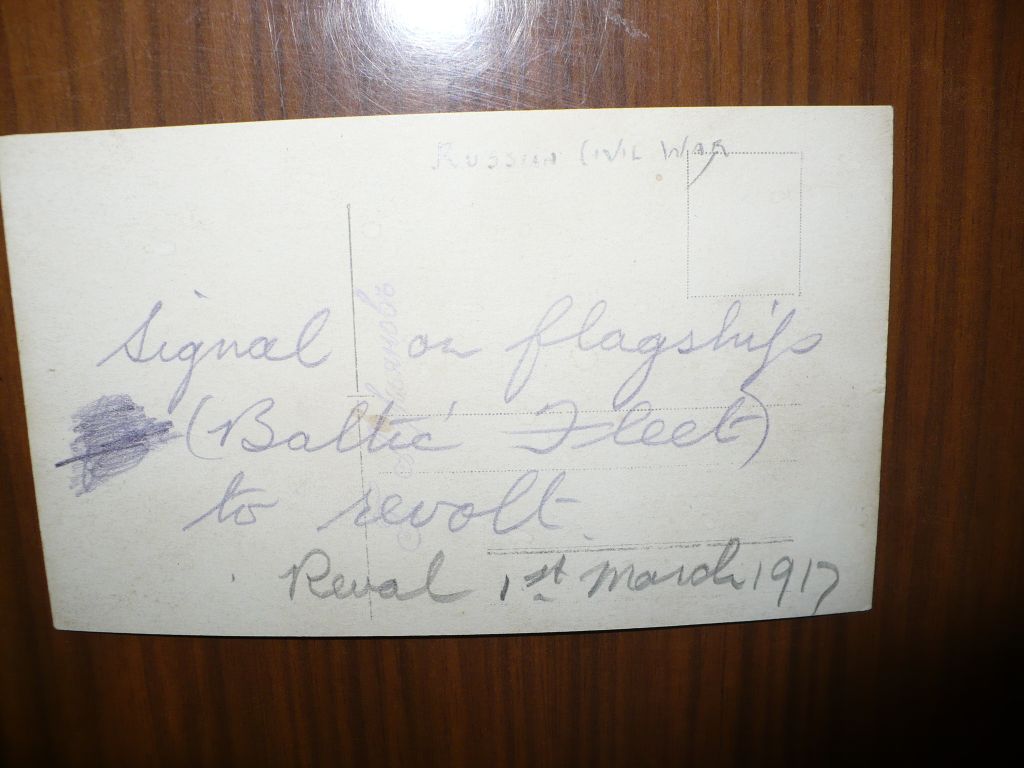 RUSSIAN CIVIL WAR
Signal on flagships
(Baltic Fleet)
to revolt.
Reval 1st March 1917